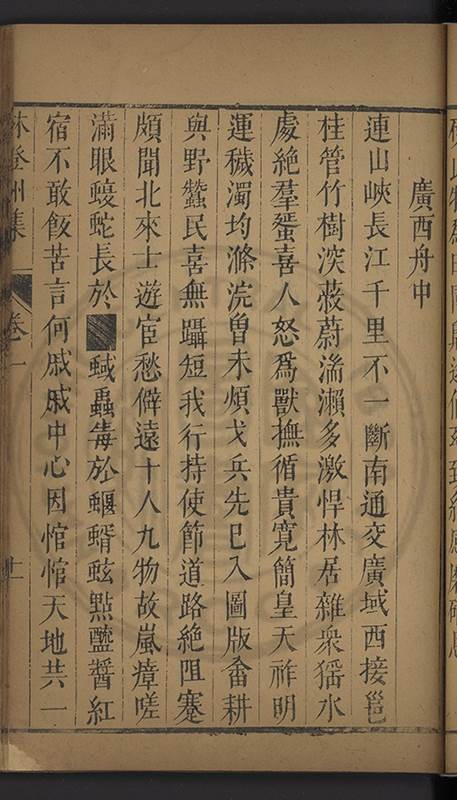 廣西舟中
連山峽長江千里不一斷南通交廣域西接邕
桂管竹樹深蔽蔚湍瀨多激悍林居雜衆猺水
處絶羣蜑喜人怒爲獸撫循貴寬簡皇天祚明
運穢濁均滌浣曾未煩戈兵先已入圖版畬耕
與野蠶民喜無躡短我行持使節道路絶阻蹇
頗聞北來士遊宦愁僻遠十人九物故嵐瘴嗟
滿眼蝮蛇長於 蜮蟲毒於蝘蝑蚿㸃鹽醬紅
宿不敢飯苦言何戚戚中心因悺悺天地共一
林登州集 卷一 十一